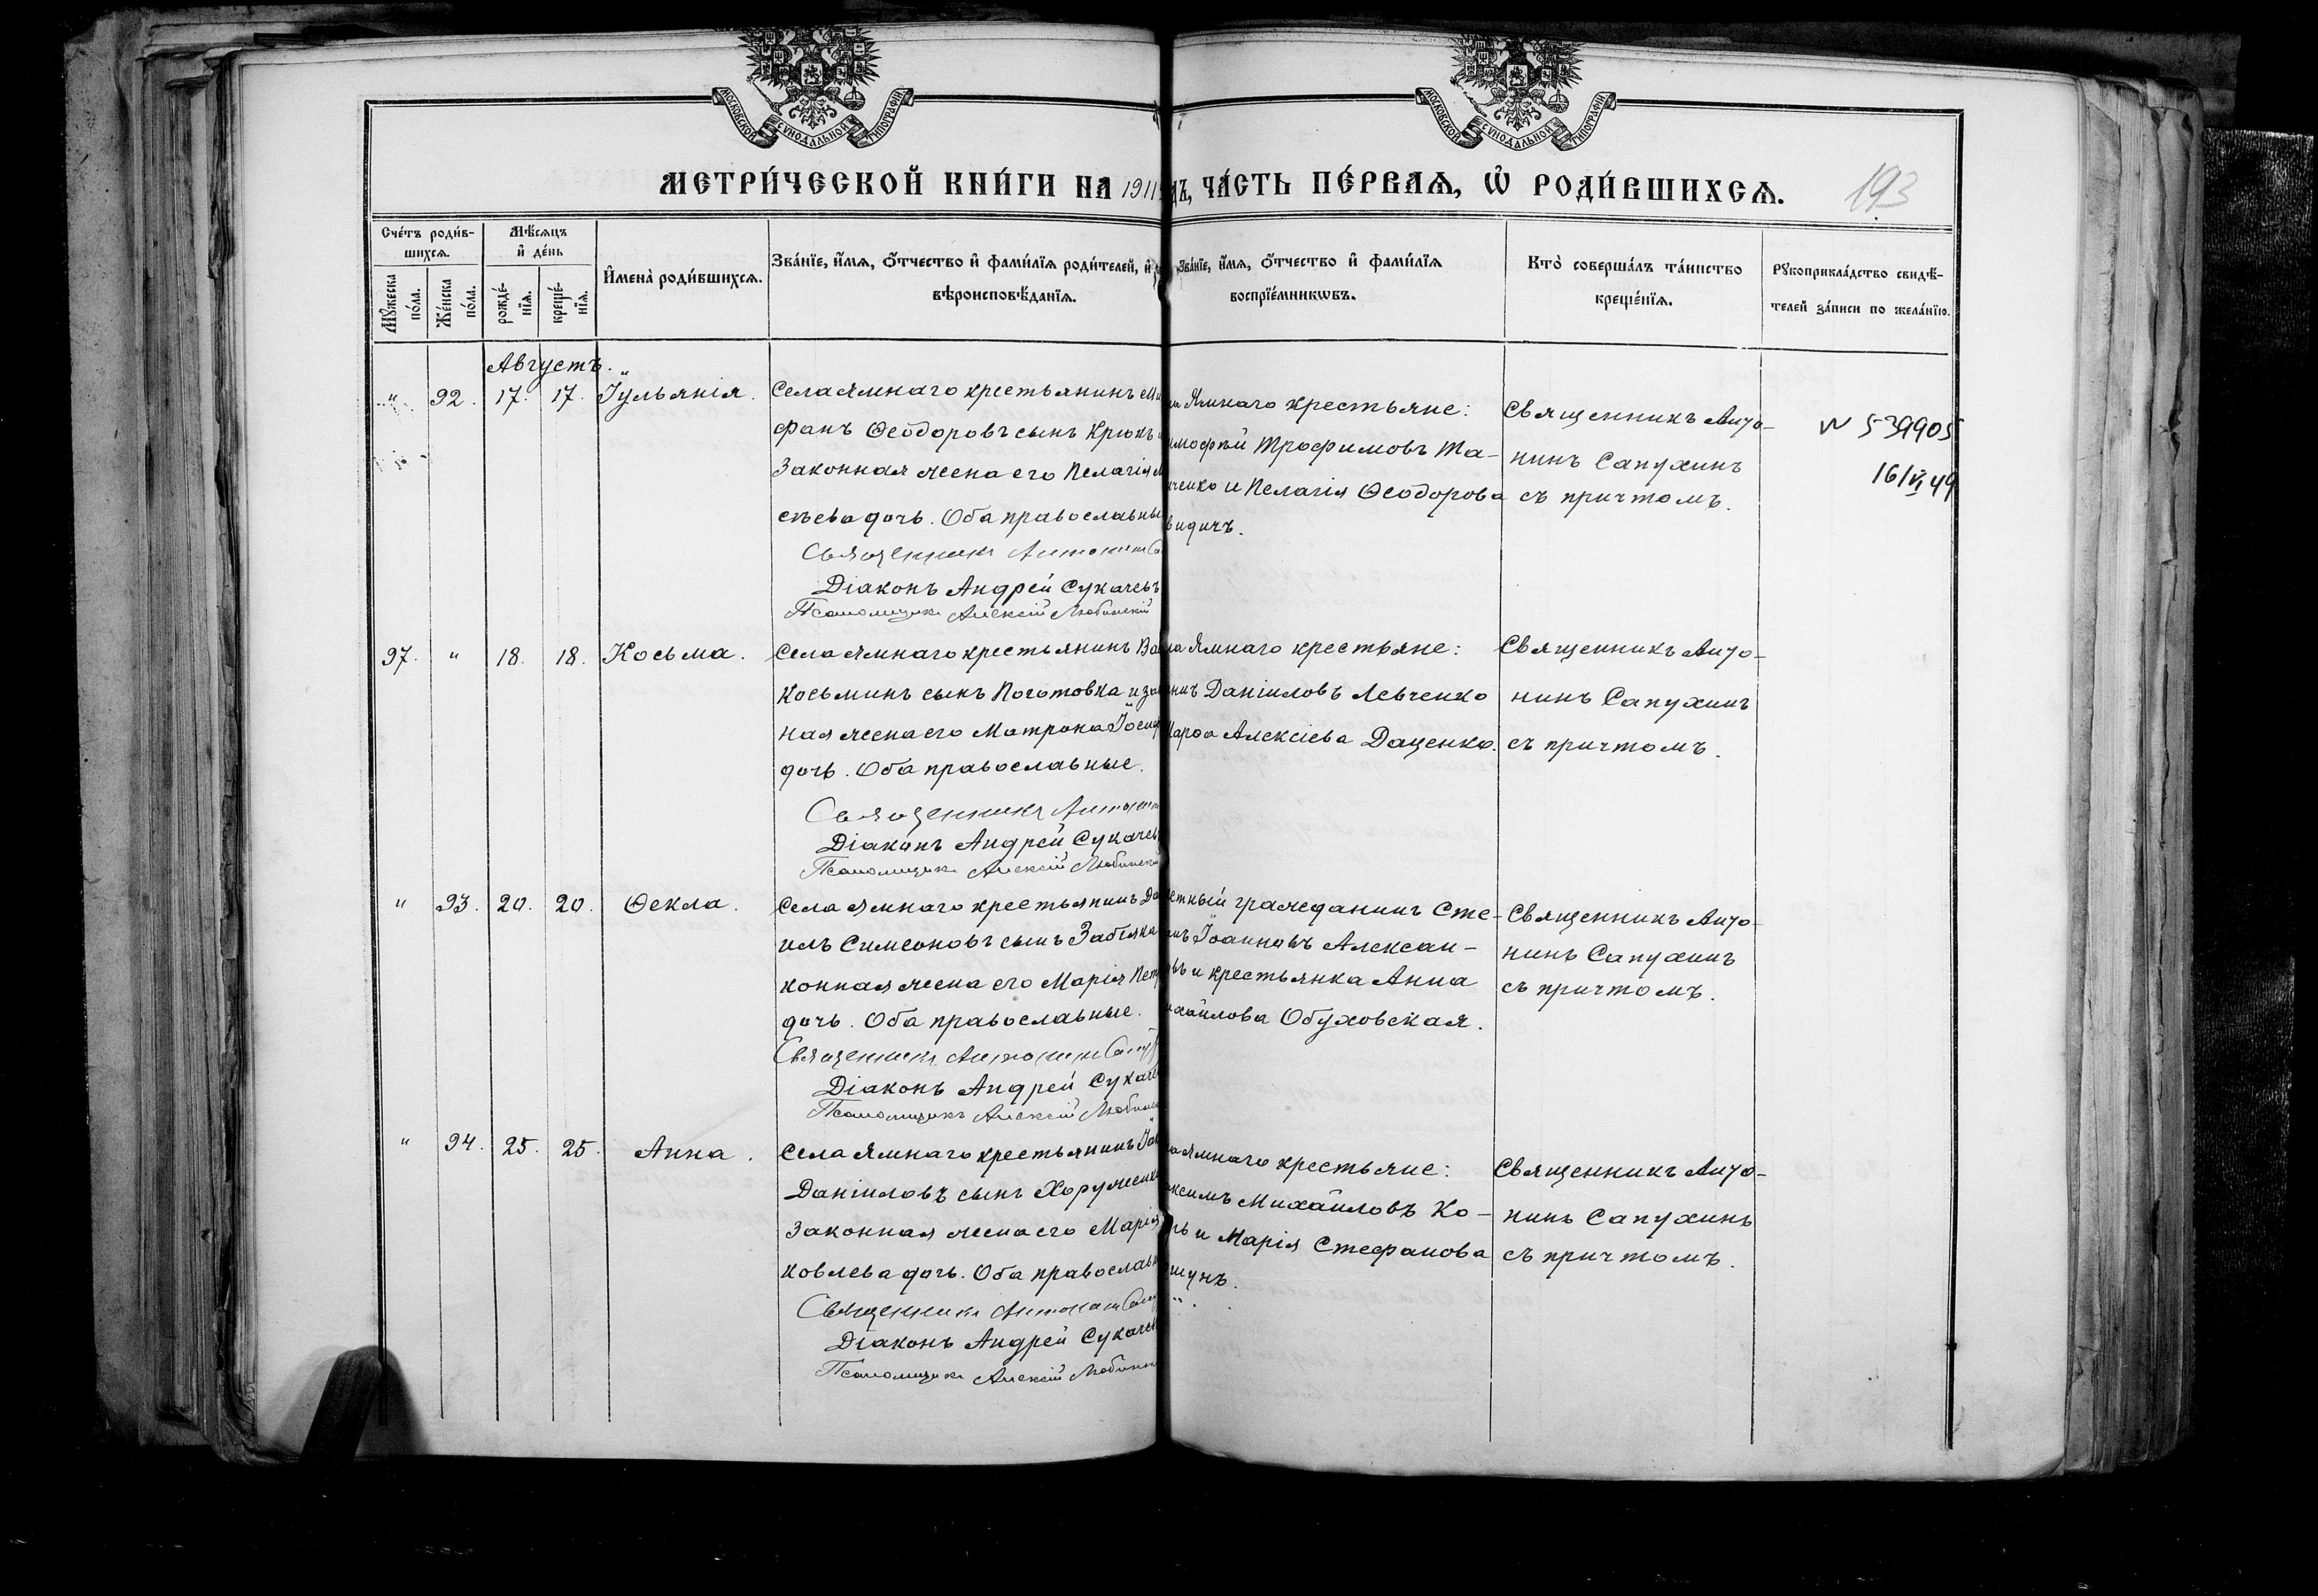 МОСКОВСКОЙ СѴНОДАЛЬНОЙ ТИПОГРАФІИ
МОСКОВСКОЙ СѴНОДАЛЬНОЙ ТИПОГРАФІИ
МЕТРИ́ЧЕСКОЙ КНИ́ГИ НА 1911
ЧА́СТЬ ПЕ́РВАЯ, Ѡ҆ РОДИ́ВШИХСЯ.
193
Сче́тъ роди́в-
шихся.
Мѣ́сяцъ
и҆ де́нь
Мꙋ́жеска по́ла.
Же́нска по́ла.
рожде́-
нїя.
креще́-
нїя.
И҆мена̀ роди́вшихся.
Зва́нїе, и҆́мя, ѻ҆́тчество и҆ фами́лїя роди́телей, и҆
вѣроисповѣ́данїя.
Зва́нїе, и҆́мя, ѻ҆́тчество и҆ фами́лїя
воспрїе́мникѡвъ.
Кто̀ соверша́лъ та́инство
креще́нїя.
Рꙋкоприкла́дство свидѣ́-
телей за́писи по жела́нїю.
Августъ.
" 92. 17. 17. Іульянія.
Села Ямнаго крестьянинъ Ми
фанъ Ѳеодоровъ сынъ Крюкъ
законная жена его Пелагія
сѣева дочь. Оба православны
Священникъ Антонинъ
Діаконъ Андрей Сукачевъ
Псаломщикъ Алексій Любинскій
Ямнаго крестьяне:
имофѣй Трофимовъ Та-
ченко и Пелагія Ѳеодорова
видичъ.
Священникъ Анто-
нинъ Сапухинъ
съ причтомъ.
N 539905
16/VI 49
97. " 18. 18. Косьма.
Села Ямнаго крестьянинъ Ва
Косьминъ сынъ Поготовка и за
ная жена его Матрона Іосиф
дочь. Оба православные.
Священникъ Антонин
Діаконъ Андрей Сукачев
Псаломщикъ Алексій Любински
ла Ямнаго крестьяне:
Даніиловъ Левченко
Марѳа Алексіева Даценко.
Священникъ Анто-
нинъ Сапухинъ
съ причтомъ.
" 93. 20. 20. Ѳекла.
Села Ямнаго крестьянинъ Да
илъ Симеоновъ сынъ Забіяка
конная жена его Марія Петр
дочь. Оба православные.
Священникъ Антонинъ Сапу
Діаконъ Андрей Сукаче
Псаломщикъ Алексій Любинс
етный гражданинъ Сте-
анъ Іоанновъ Алексан-
овъ и крестьянка Анна
ихайлова Обуховская.
Священникъ Анто-
нинъ Сапухинъ
съ причтомъ.
" 94. 25. 25. Анна.
Села Ямнаго крестьянинъ Іоа
Даніиловъ сынъ Хоруженко
законная жена его Марія
ковлева дочь. Оба православн
Священникъ Антонинъ Сапу
Діаконъ Андрей Сукачев
Псаломщикъ Алексій Любинск
ла Ямнаго крестьяне:
аксимъ Михайловъ Ко-
и Марія Стефанова
шунъ.
Священникъ Анто-
нинъ Сапухинъ
съ причтомъ.